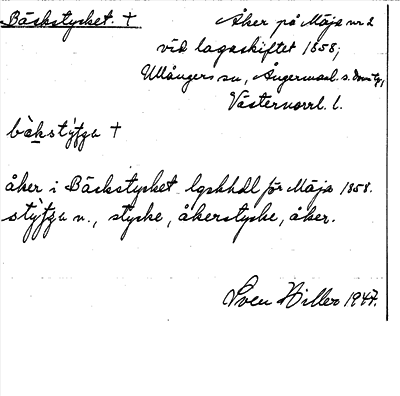 Bäckstycket. † Åker på Mäja nr 2
vid lagaskiftet 1858;
Ullångers sn, Ångermanl. s. domsg,
Västernorrl. l.
bàkstỳtga †
åker i Bäckstycket lgskhdl för Mäja 1858.
stỳtga n., stycke, åkerstycke, åker.
Sven Hiller 1947.